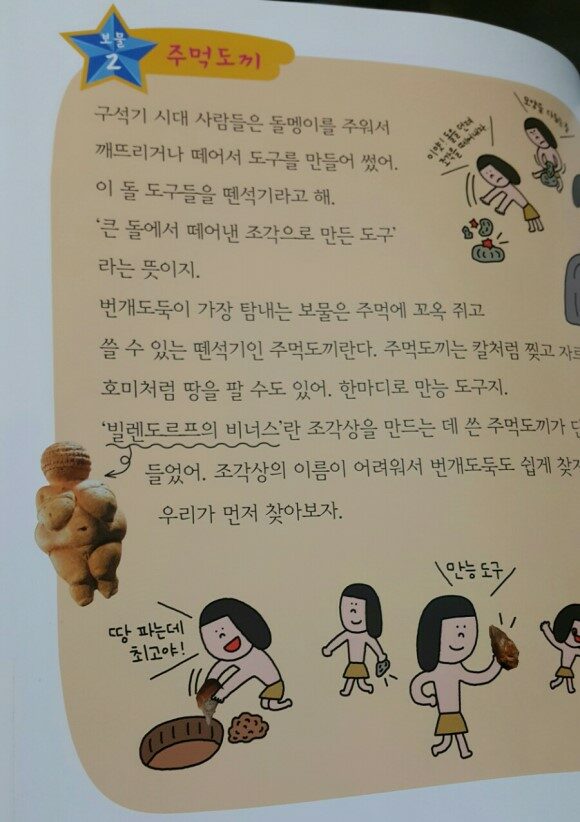 보물
2
주먹도끼
구석기 시대 사람들은 돌멩이를 주워서
깨뜨리거나 떼어서 도구를 만들어 썼어.
이 돌 도구들을 뗀석기라고 해.
'큰 돌에서 떼어낸 조각으로 만든 도구'
라는 뜻이지.
번개도둑이 가장 탐내는 보물은 주먹에 꼬옥 쥐고
쓸 수 있는 뗀석기인 주먹도끼란다. 주먹도끼는 칼처럼 찢고
호미처럼 땅을 팔 수도 있어. 한마디로 만능 도구지.
'빌렌도르프의 비너스'란 조각상을 만드는 데 쓴 주먹도끼가
들었어. 조각상의 이름이 어려워서 번개도둑도 쉽게
우리가 먼저 찾아보자.
만능 도구
땅 파는데
최고야!